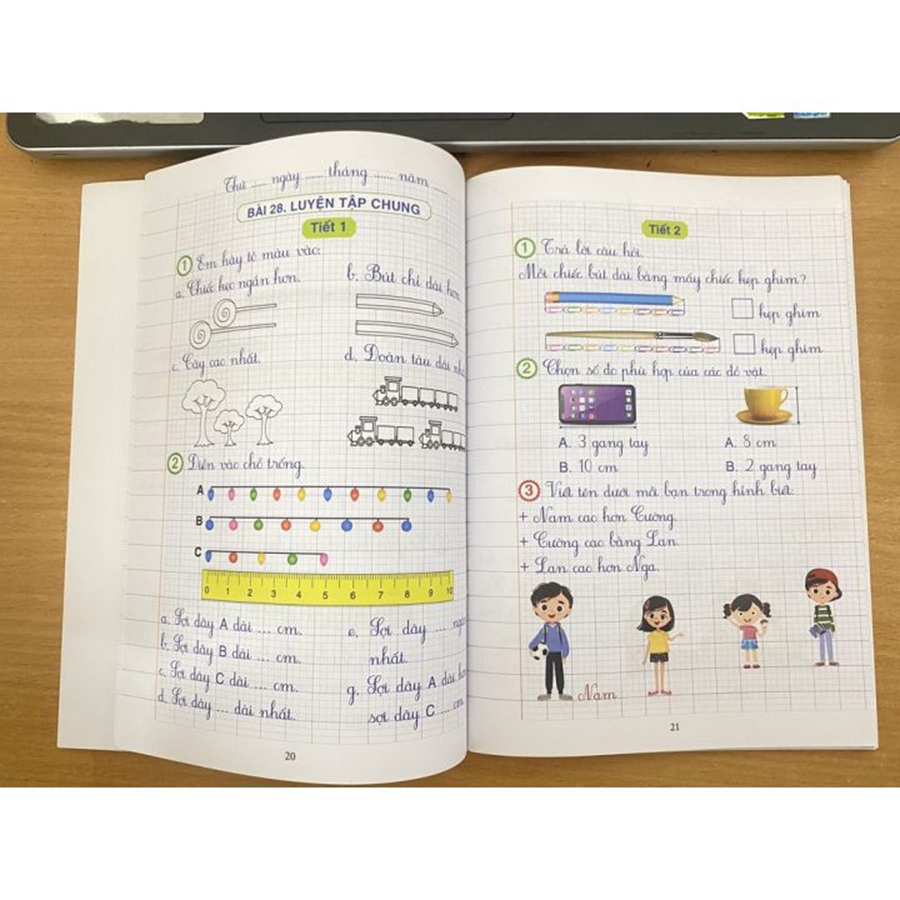 Thứ ..... ngày ...... tháng ...... năm ......
BÀI 28. LUYỆN TẬP CHUNG
Tiết 1
1 Em hãy tô màu vào:
a. Chiếc kẹo ngắn hơn.
b. Bút chì dài hơn
c. Cây cao nhất.
d. Đoàn tàu dài
2 Điền vào chỗ trống.
A
B
C
0 1 2 3 4 5 6 7 8 9 10
a. Sợi dây A dài .... cm.
b. Sợi dây B dài .... cm.
c. Sợi dây C dài .... cm.
d. Sợi dây .... dài nhất.
e. Sợi dây ....
nhất.
g. Sợi dây A dài
sợi dây C .... cm
20
Tiết 2
1 Trả lời câu hỏi.
Mỗi chiếc bút dài bằng mấy chiếc kẹp ghim?
kẹp ghim
kẹp ghim
2 Chọn số đo phù hợp của các đồ vật.
A. 3 gang tay
B. 10 cm
A. 8 cm
B. 2 gang tay
3 Viết tên dưới mỗi bạn trong hình biết:
+ Nam cao hơn Cường.
+ Cường cao bằng Lan.
+ Lan cao hơn Nga.
Nam
21